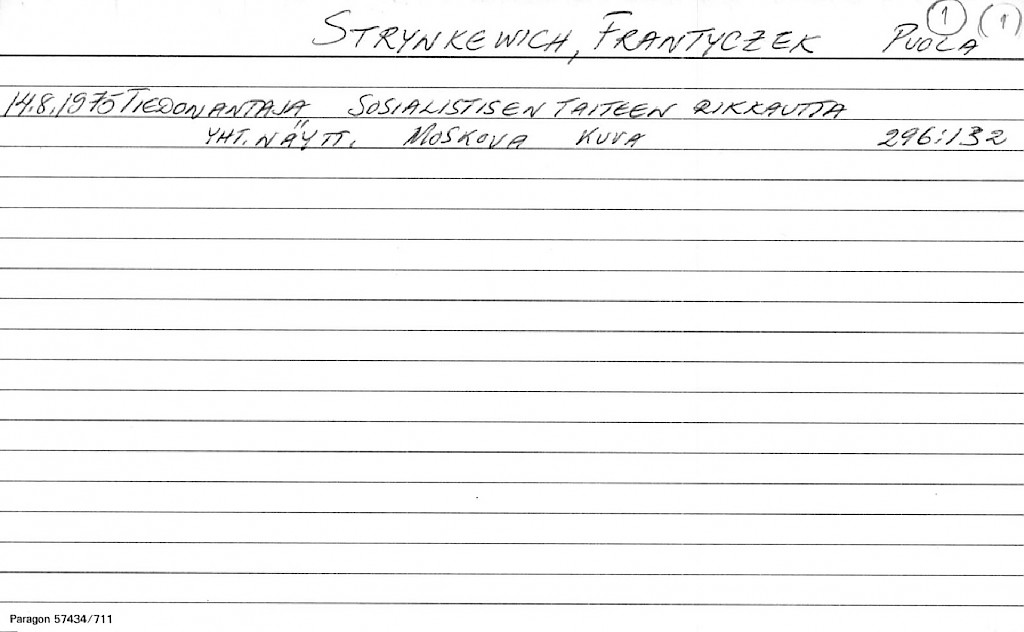 STRYNKEWICH, FRANTYCZEK PUOLA 1 (1)
14.8.1975 TIEDONANTAJA SOSIALISTISEN TAITEEN RIKKAUTTA
YHT. NÄYTT. MOSKOVA KUVA 296:132
Paragon 57434/711